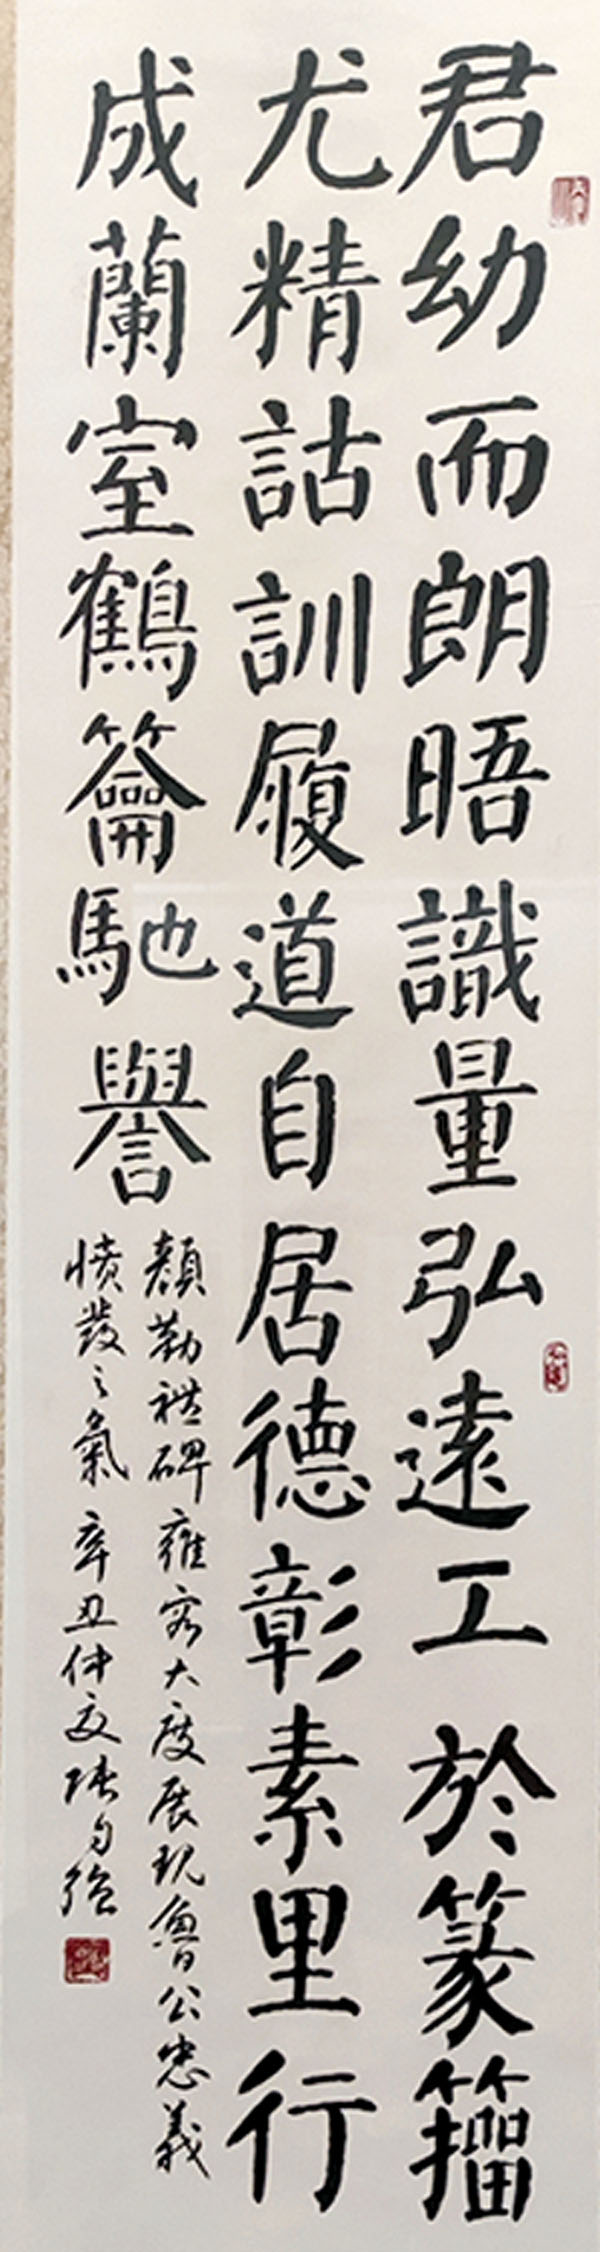 君幼而朗晤識量弘遠工於篆籀
尤精詁訓履道自居德彰素里行
成蘭室鶴籥馳譽
顏勤禮碑雍容大度展現魯公忠義
憤發之氣 辛丑仲夏張自強